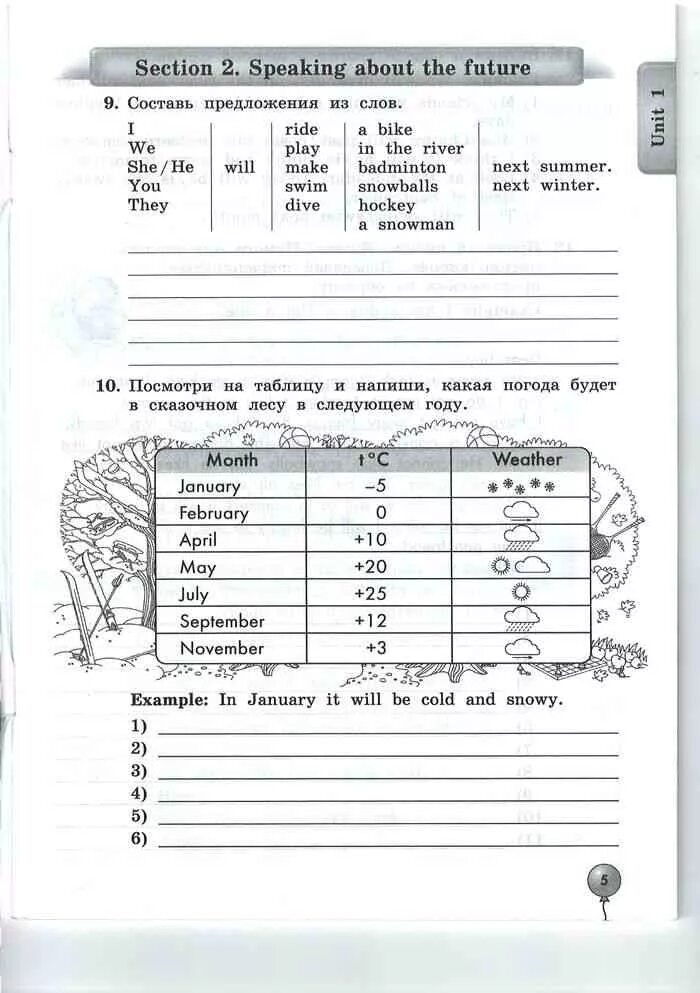 Section 2. Speaking about the future
Unit 1
9. Составь предложения из слов.
I ride a bike
We play in the river
She/He will make badminton next summer.
You swim snowballs next winter.
They dive hockey
a snowman
10. Посмотри на таблицу и напиши, какая погода будет
в сказочном лесу в следующем году.
Month t °C Weather
January –5
February 0
April +10
May +20
July +25
September +12
November +3
Example: In January it will be cold and snowy.
1)
2)
3)
4)
5)
6)
5